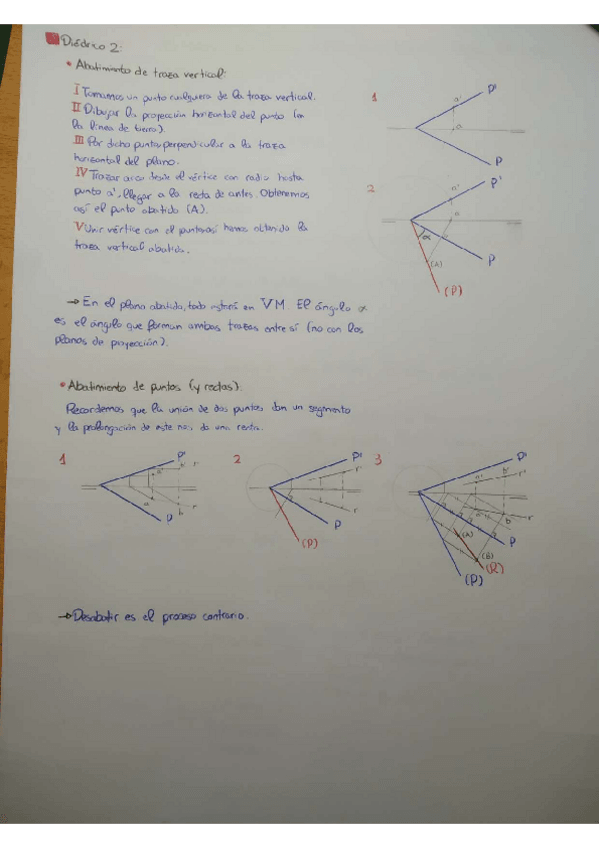 Diédrico 2:
• Abatimiento de traza vertical:
I Tomamos un punto cualquiera de la traza vertical.
II Dibujar la proyección horizontal del punto (en
la línea de tierra).
III Por dicho punto, perpendicular a la traza
horizontal del plano.
IV Trazar arco desde el vértice con radio hasta
punto a', llegar a la recta de antes. Obtenemos
así el punto abatido (A).
V Unir vértice con el punto, así hemos obtenido la
traza vertical abatida.
1
P'
a'
a
P
2
P'
a'
a
α
(A)
P
(P)
→ En el plano abatido, todo estará en VM. El ángulo α
es el ángulo que forman ambas trazas entre sí (no con los
planos de proyección).
• Abatimiento de puntos (y rectas):
Recordemos que la unión de dos puntos dan un segmento
y la prolongación de este nos da una recta.
1
P'
a'
b'
r'
a
b
r
P
2
P'
r'
r
P
(P)
3
P'
b'
a'
r'
a
r
b
(A)
P
(B)
(R)
(P)
→ Desabatir es el proceso contrario.